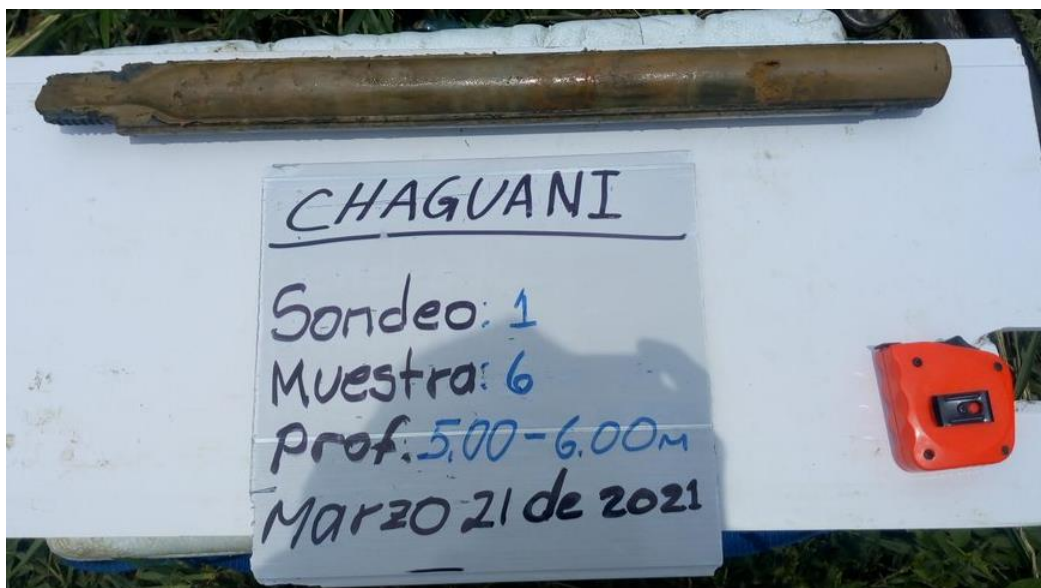 CHAGUANI
Sondeo: 1
Muestra: 6
Prof: 5.00-6.00m
Marzo 21 de 2021